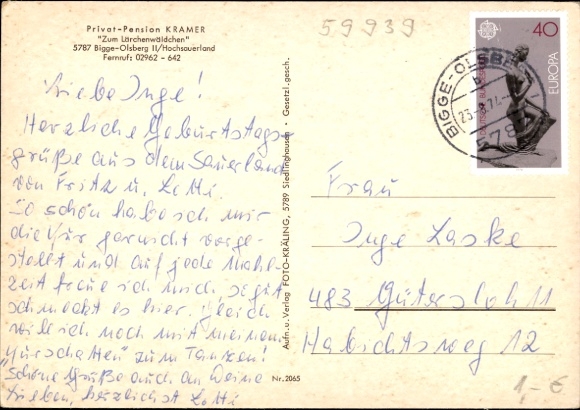 Privat-Pension KRAMER
"Zum Lärchenwäldchen"
5787 Bigge-Olsberg II/Hochsauerland
Fernruf: 02962 - 642
Liebe Inge!
Herzliche Geburtstags-
grüße aus dem Sauerland
von Fritz u. Lotti.
So schön habe ich mir
die Kur garnicht vorge-
stellt und auf jede Mahl-
zeit freue ich mich so gut
schmeckt es hier. Gleich
will ich noch mit meinem
"Kurschatten" zum Tanzen!
Schöne Grüße auch an Deine
Lieben, herzlichst Lotti
Aufn. u. Verlag FOTO-KRÄLING, 5789 Siedlinghausen · Gesetzl. gesch.
Nr. 2065
59939
40
EUROPA
DEUTSCHE BUNDESPOST
BIGGE-OLSBERG
5787
Frau
Inge Laske
483 Gütersloh 11
Habichtsweg 12
1,- €